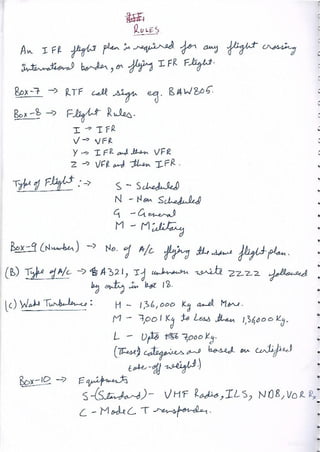 RULES
An IFR flight plan is required for any flight crossing
International border, or flying IFR Flight.
Box-7 → RTF call sign eg. BAW805.
Box-8 → Flight Rules.
I → IFR
V → VFR
Y → IFR and then VFR
Z → VFR and then IFR.
Type of Flight :→ S - Scheduled
N - Non Scheduled
G - General
M - Military
Box-9 (Number) → No. of A/c flying the same flight plan.
(B) Type of A/c → A321, If unknown write ZZZZ followed
by entry in box 18.
(c) Wake Turbulence : H - 1,36,000 Kg and More.
M - 7,001 Kg to Less than 1,36000 Kg.
L - Upto 7000 Kg.
(These categories are based on certified
take-off weight.)
Box-10 → Equipments
S-(Standard) - VMF Radio, ILS, NDB, VOR
C - Mode C Transponder.